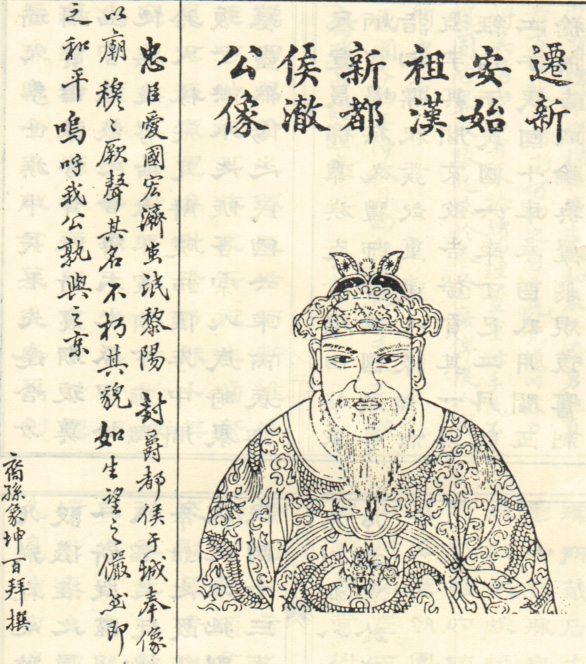 遷新
安始
祖漢
新都
侯澈
公像
忠臣愛國宏濟蚩氓黎陽封爵都侯于城奉像
以廟穆々厥聲其名不朽其貌如生望之儼然即
之和平嗚呼我公孰與之京
裔孫象坤百拜撰